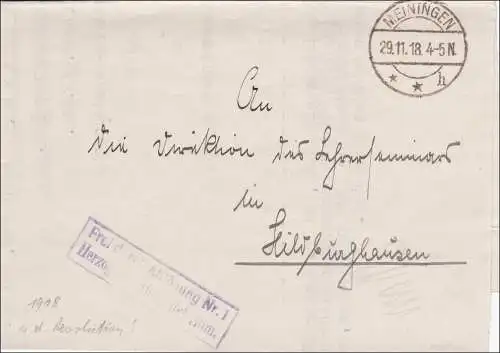 MEININGEN
29.11.18. 4-5 N.
* * h
An
die Direktion des Lehrerseminars
in
Hildburghausen
Frei Nr. 1
Herzog
1918
n. d. Revolution!